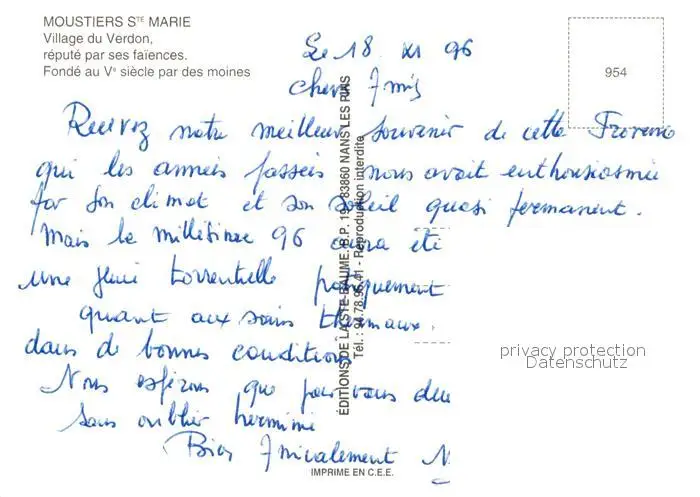 MOUSTIERS STE MARIE
Village du Verdon,
réputé par ses faïences.
Fondé au Ve siècle par des moines
954
Le 18 XI 96
Chers Amis
Recevez notre meilleur souvenir de cette Provence
qui les années passées nous avait enthousiasmé
par son climat et son soleil quasi permanent.
Mais le millésime 96 aura été
une pluie torrentielle pratiquement
quant aux soins thermaux.
dans de bonnes conditions
Nous espérons que pour vous deux
sans oublier hermine
Bien Amicalement
ÉDITIONS DE LA STE-BAUME. B.P. 19 - 83860 NANS LES PINS
Tél. : 94.78.95.41 - Reproduction interdite
IMPRIMÉ EN C.E.E.
privacy protection
Datenschutz